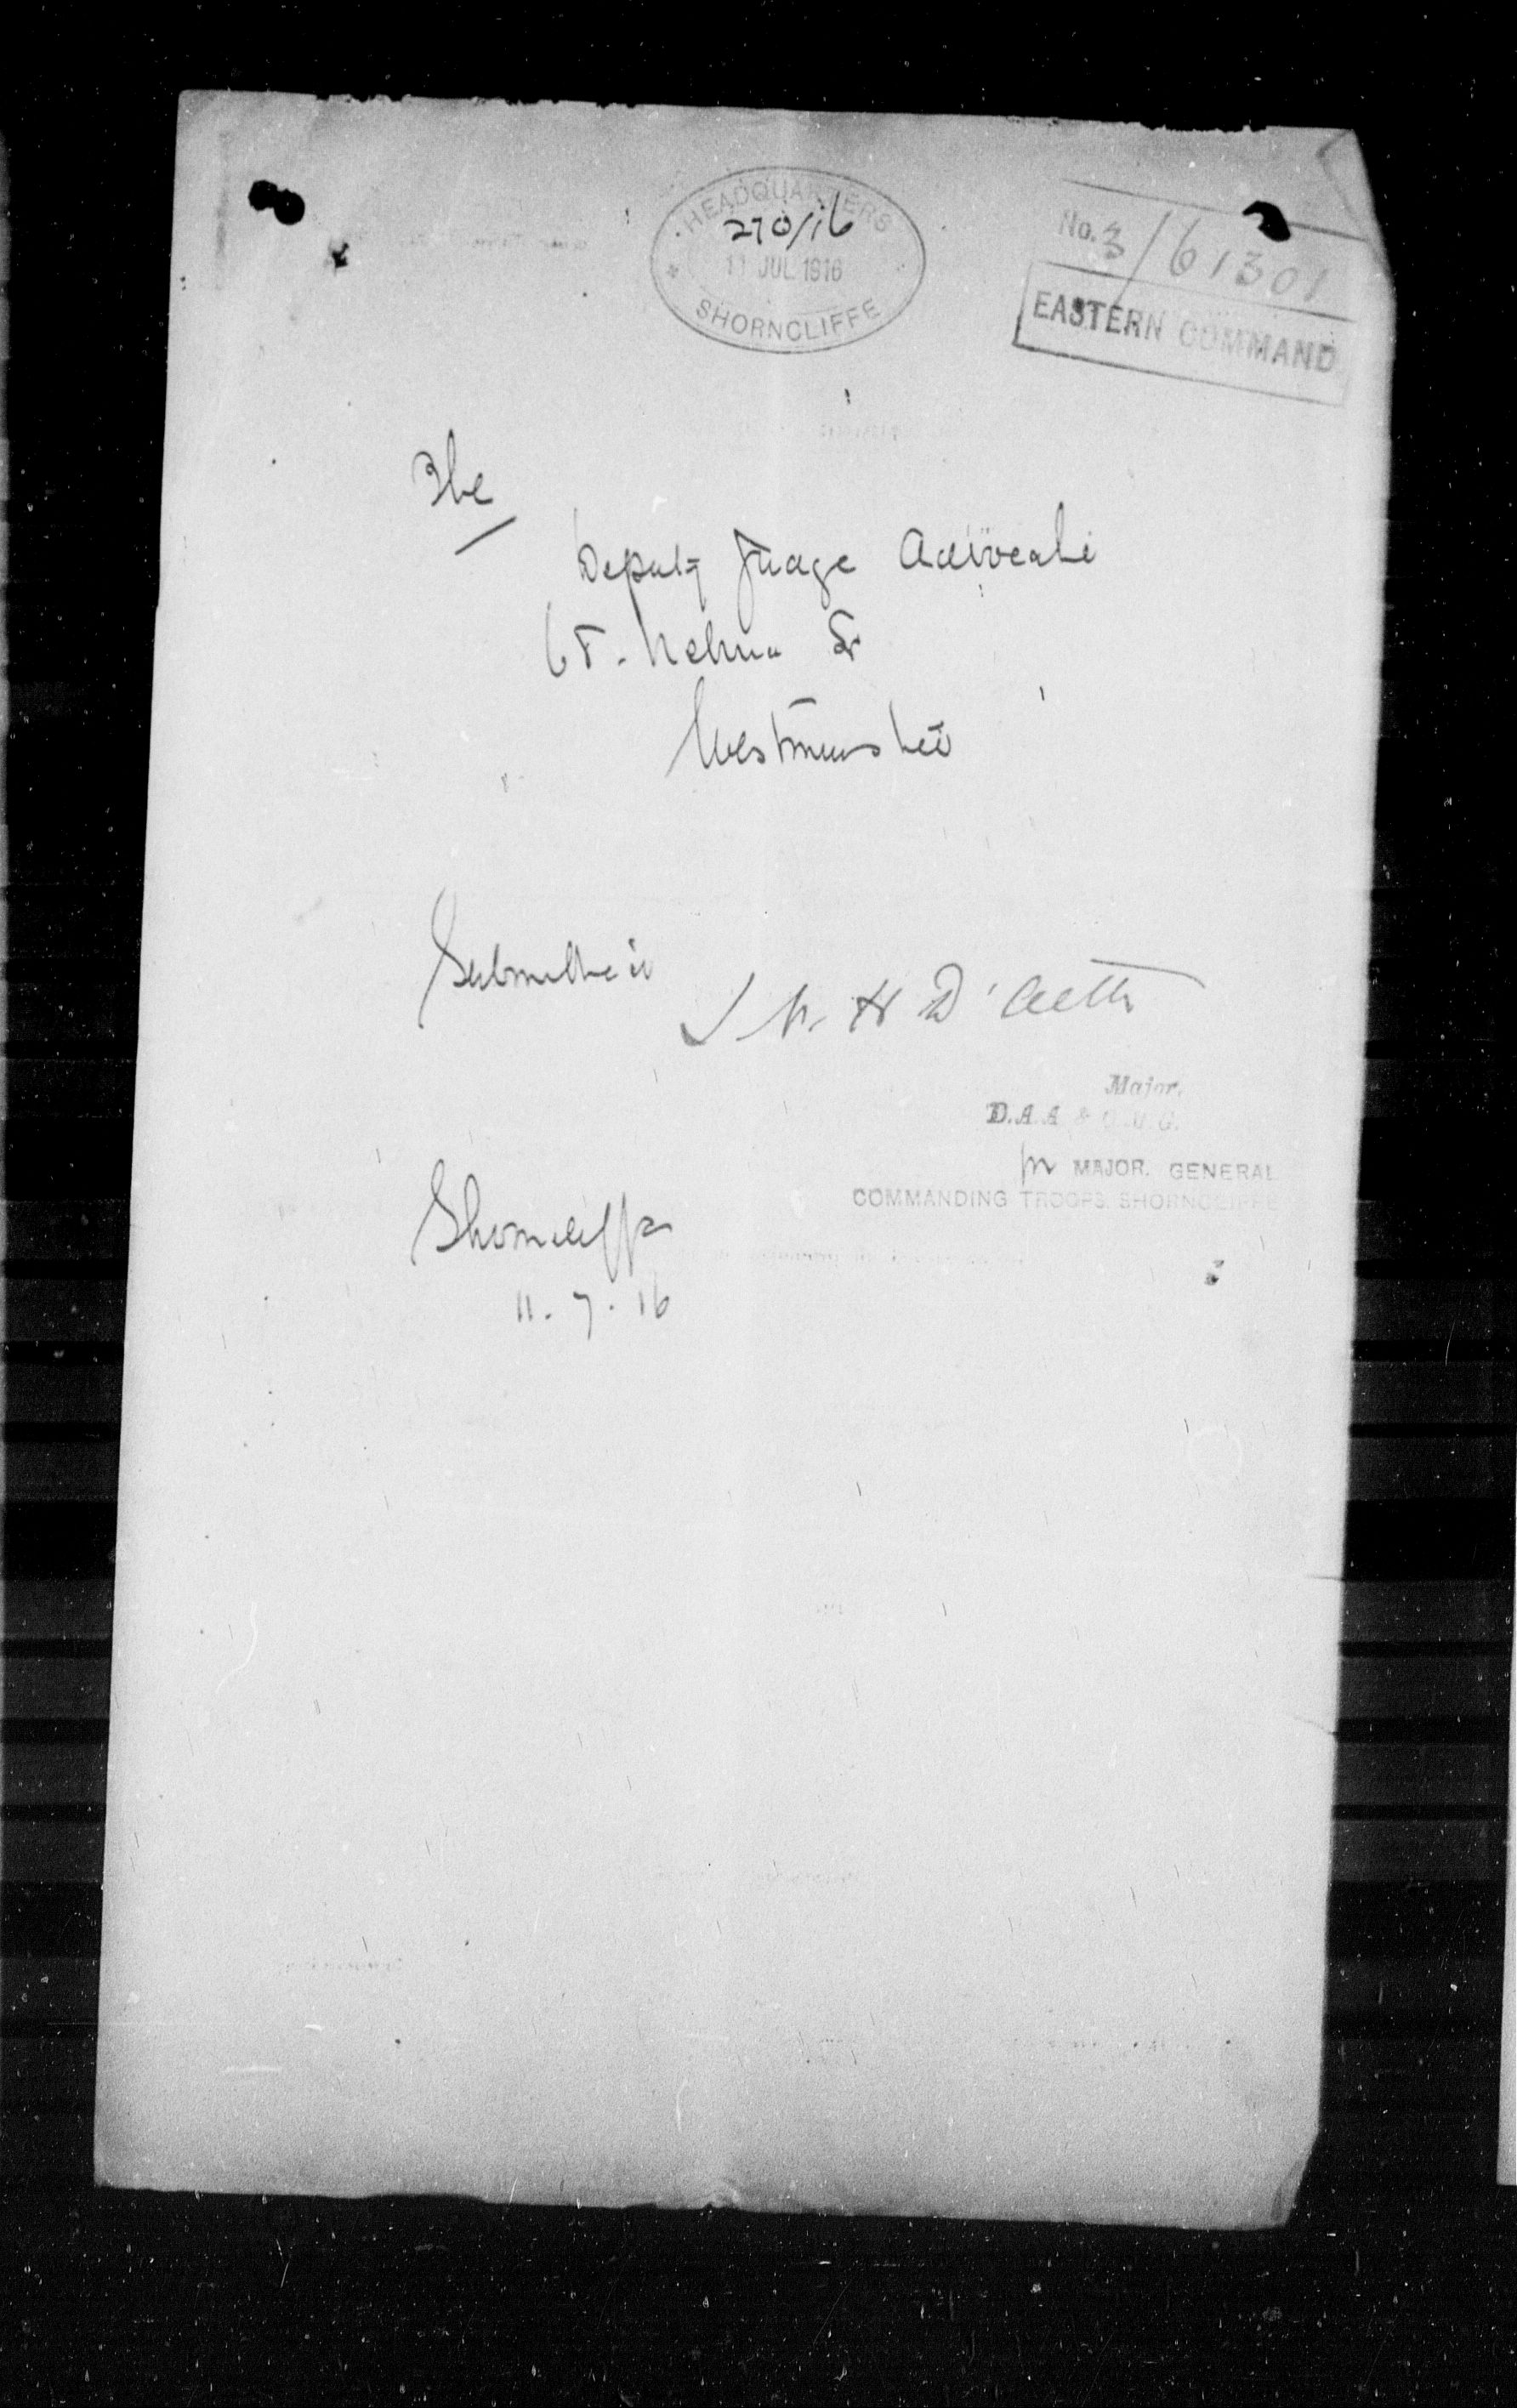 HEADQUARTERS
270/16
11 JUL 1916
SHORNCLIFFE
No. 3/61301
EASTERN COMMAND
The
Deputy Judge Advocate
St
Westminster
Submitted
H D'Aeth
Major,
D.A.A & Q.M.G.
for MAJOR. GENERAL
COMMANDING TROOPS. SHORNCLIFFE
Shorncliffe
11.7.16